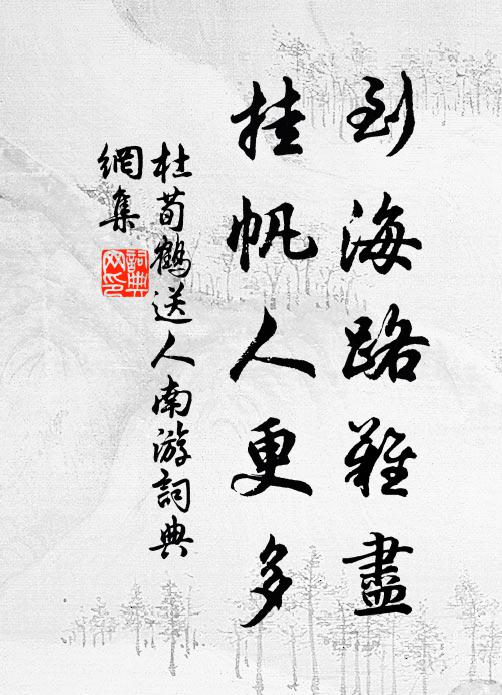 到海路難盡
挂帆人更多
杜荀鶴送人南游詞典
網集
詞典
网印